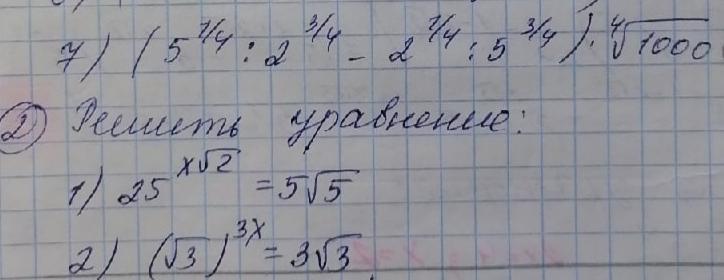 7) (5^{1/4} : 2^{3/4} - 2^{1/4} : 5^{3/4}) · ⁴√1000
② Решить уравнение:
1) 25^{x√2} = 5√5
2) (√3)^{3x} = 3√3